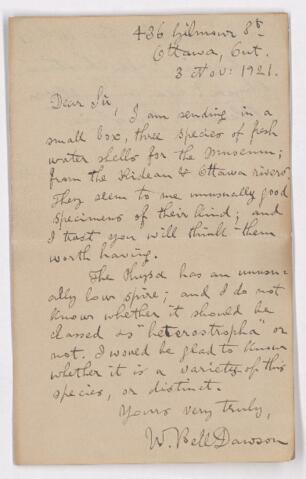 436 Gilmour St.
Ottawa, Ont.
3 Nov: 1921.
Dear Sir,
I am sending in a
small box, three species of fresh
water shells for the Museum;
from the Rideau & Ottawa rivers.
They seem to me unusually good
specimens of their kind; and
I trust you will think them
worth having.
The Physa has an unusu-
ally low spire; and I do not
know whether it should be
classed as "heterostropha" or
not. I would be glad to know
whether it is a variety of this
species, or distinct.
Yours very truly,
W. Bell Dawson